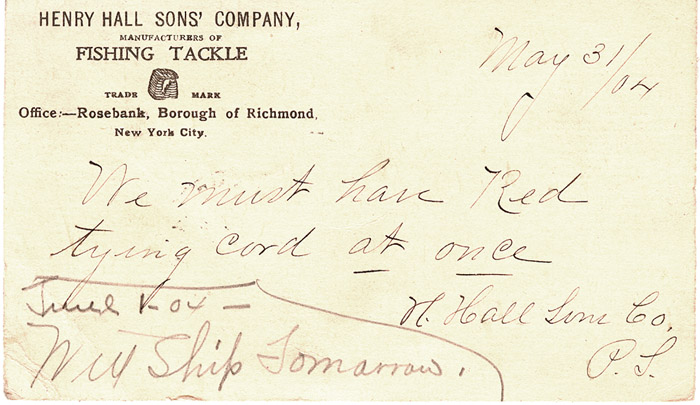 HENRY HALL SONS' COMPANY,
MANUFACTURERS OF
FISHING TACKLE
TRADE MARK
Office:—Rosebank, Borough of Richmond,
New York City.
May 31/04
We must have Red
tying cord at once
H. Hall Sons Co,
P. S.
June 1-04 —
Will Ship Tomarrow.